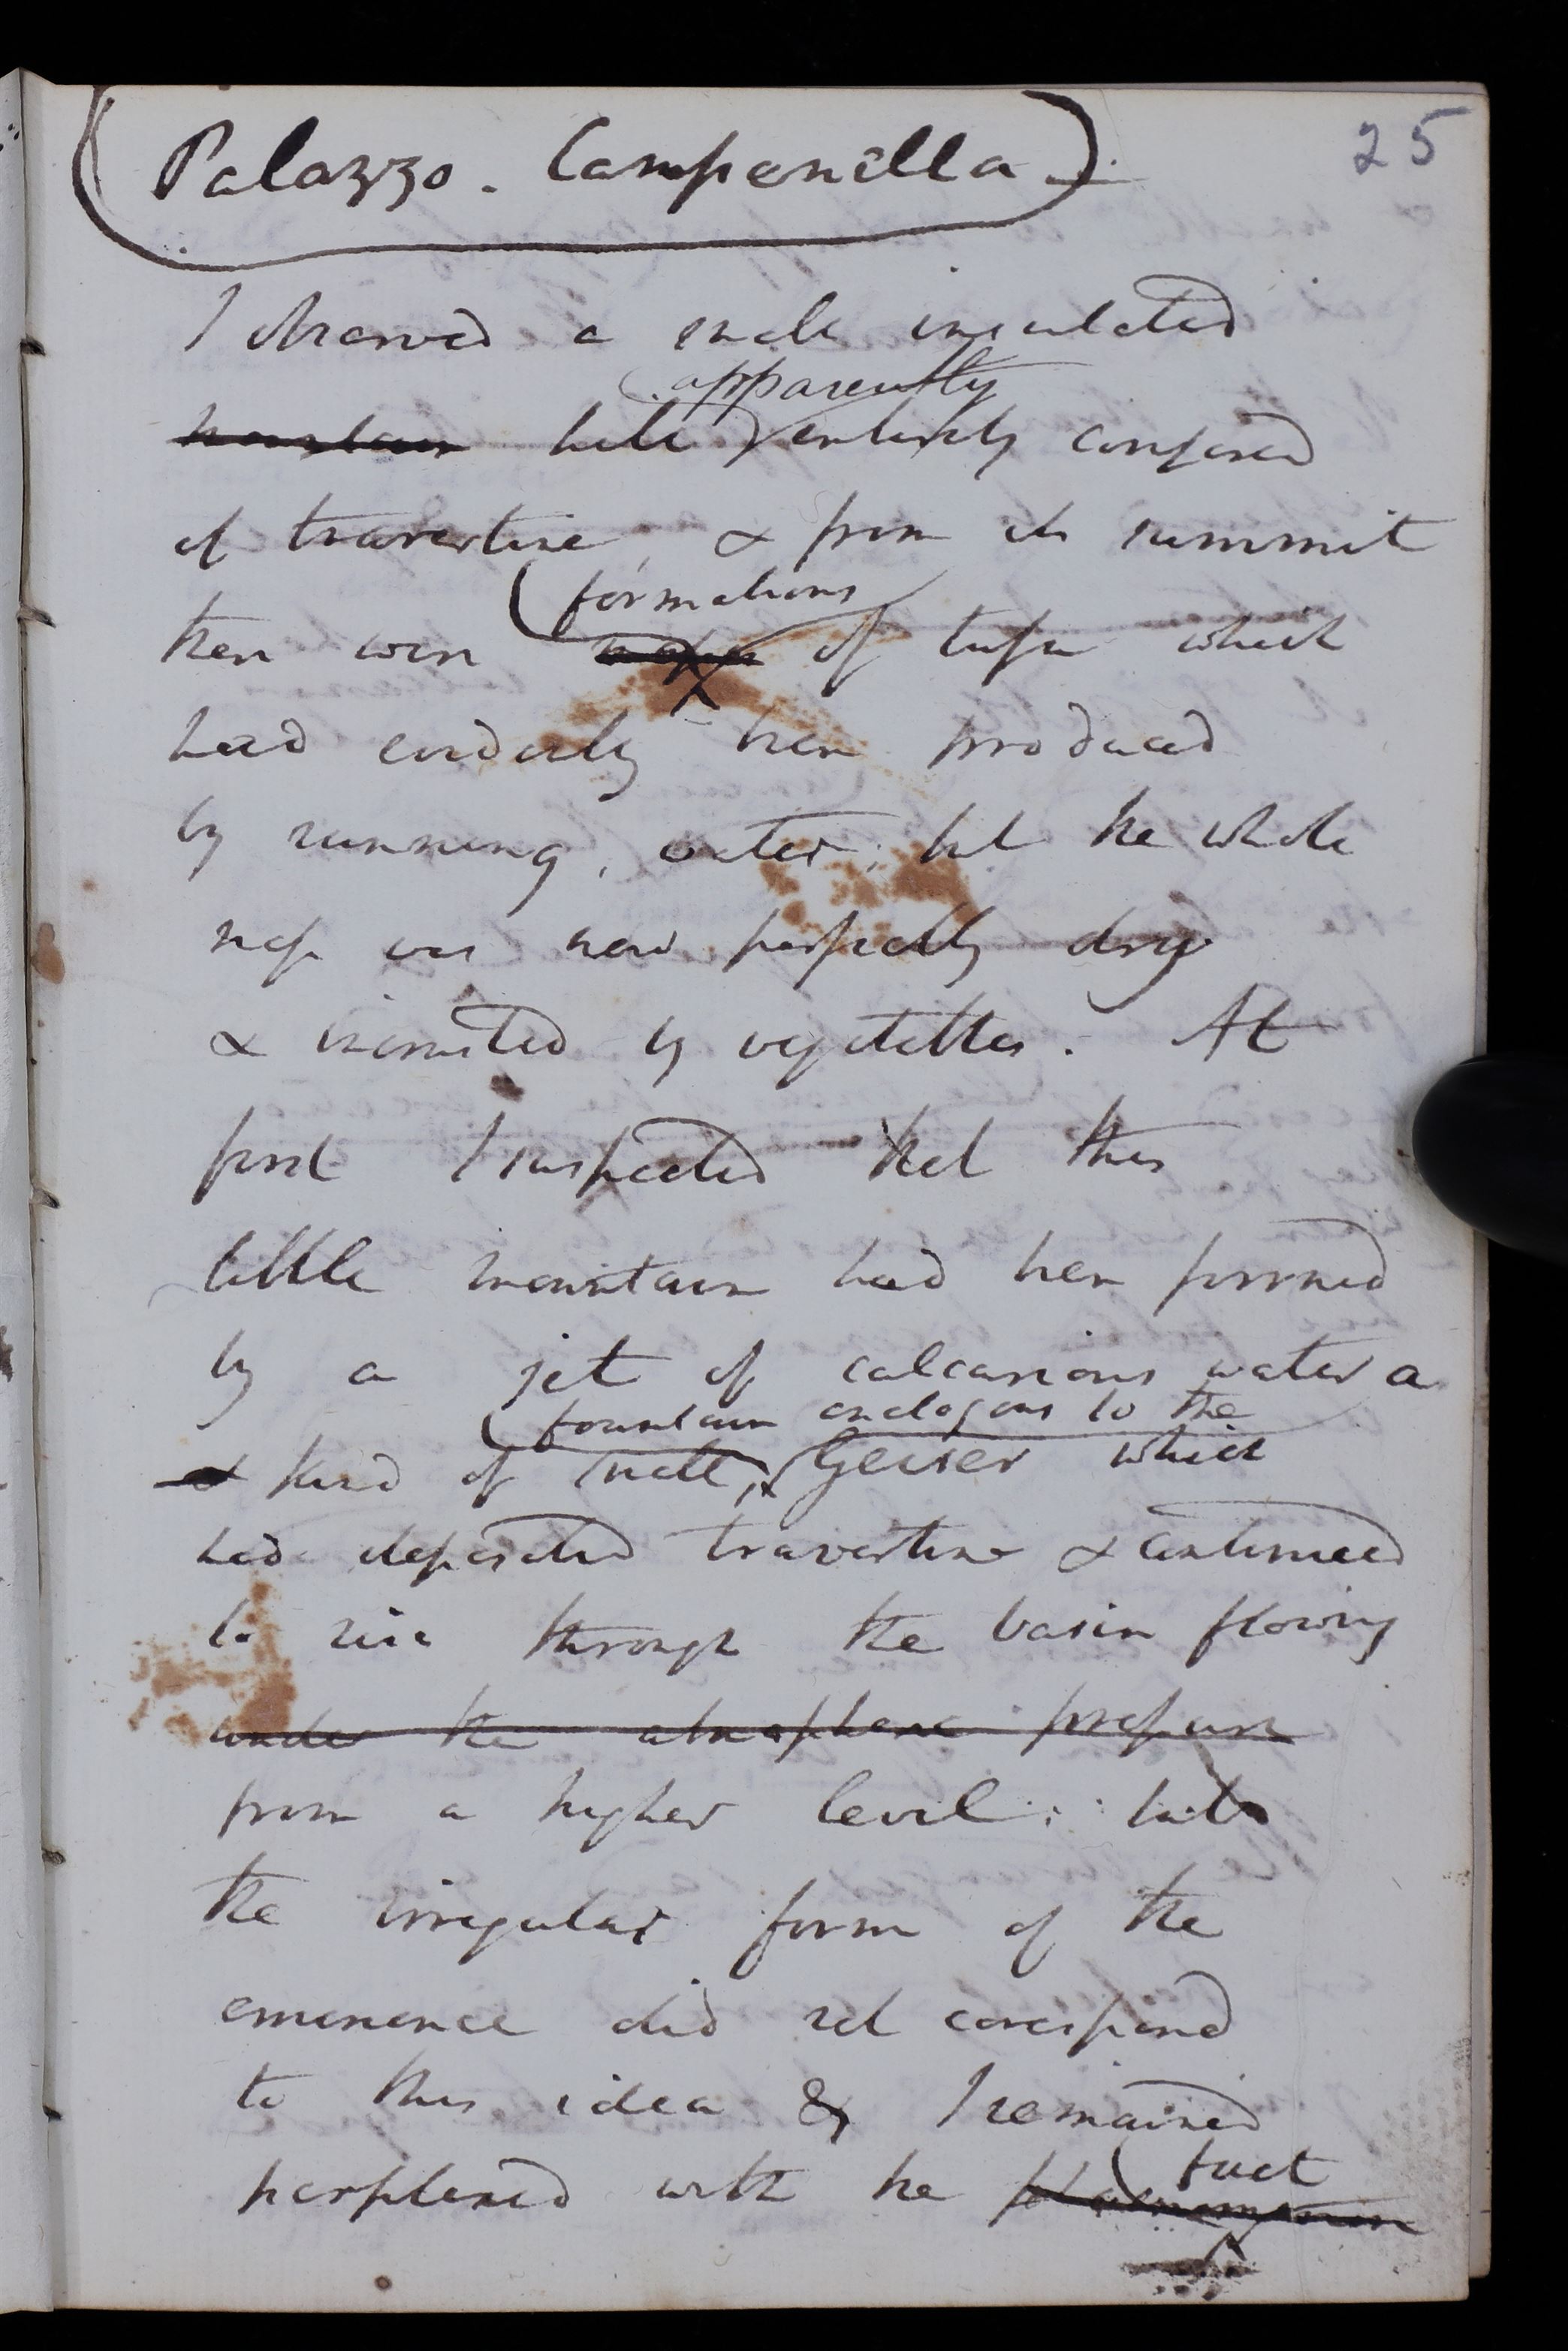 25
Palazzo. Campanilla.
I observed a small insulated
apparently
mountain hill entirely composed
of travertine, & from its summit
formations
there were of tufa which
had evidently been produced
by running, water; but the whole
mass was now perfectly dry
& incrusted by vegetables. At
first I suspected that this
little mountain had been formed
by a jet of calcarious water a
fountain analogous to the
a kind of Geiser which
had deposited travertine & continued
to rise through the basin flowing
under the atmosphere pressure
from a higher level; but
the irregular form of the
eminence did not corespond
to this idea & I remained
fact
perplexed with the phaenomenon